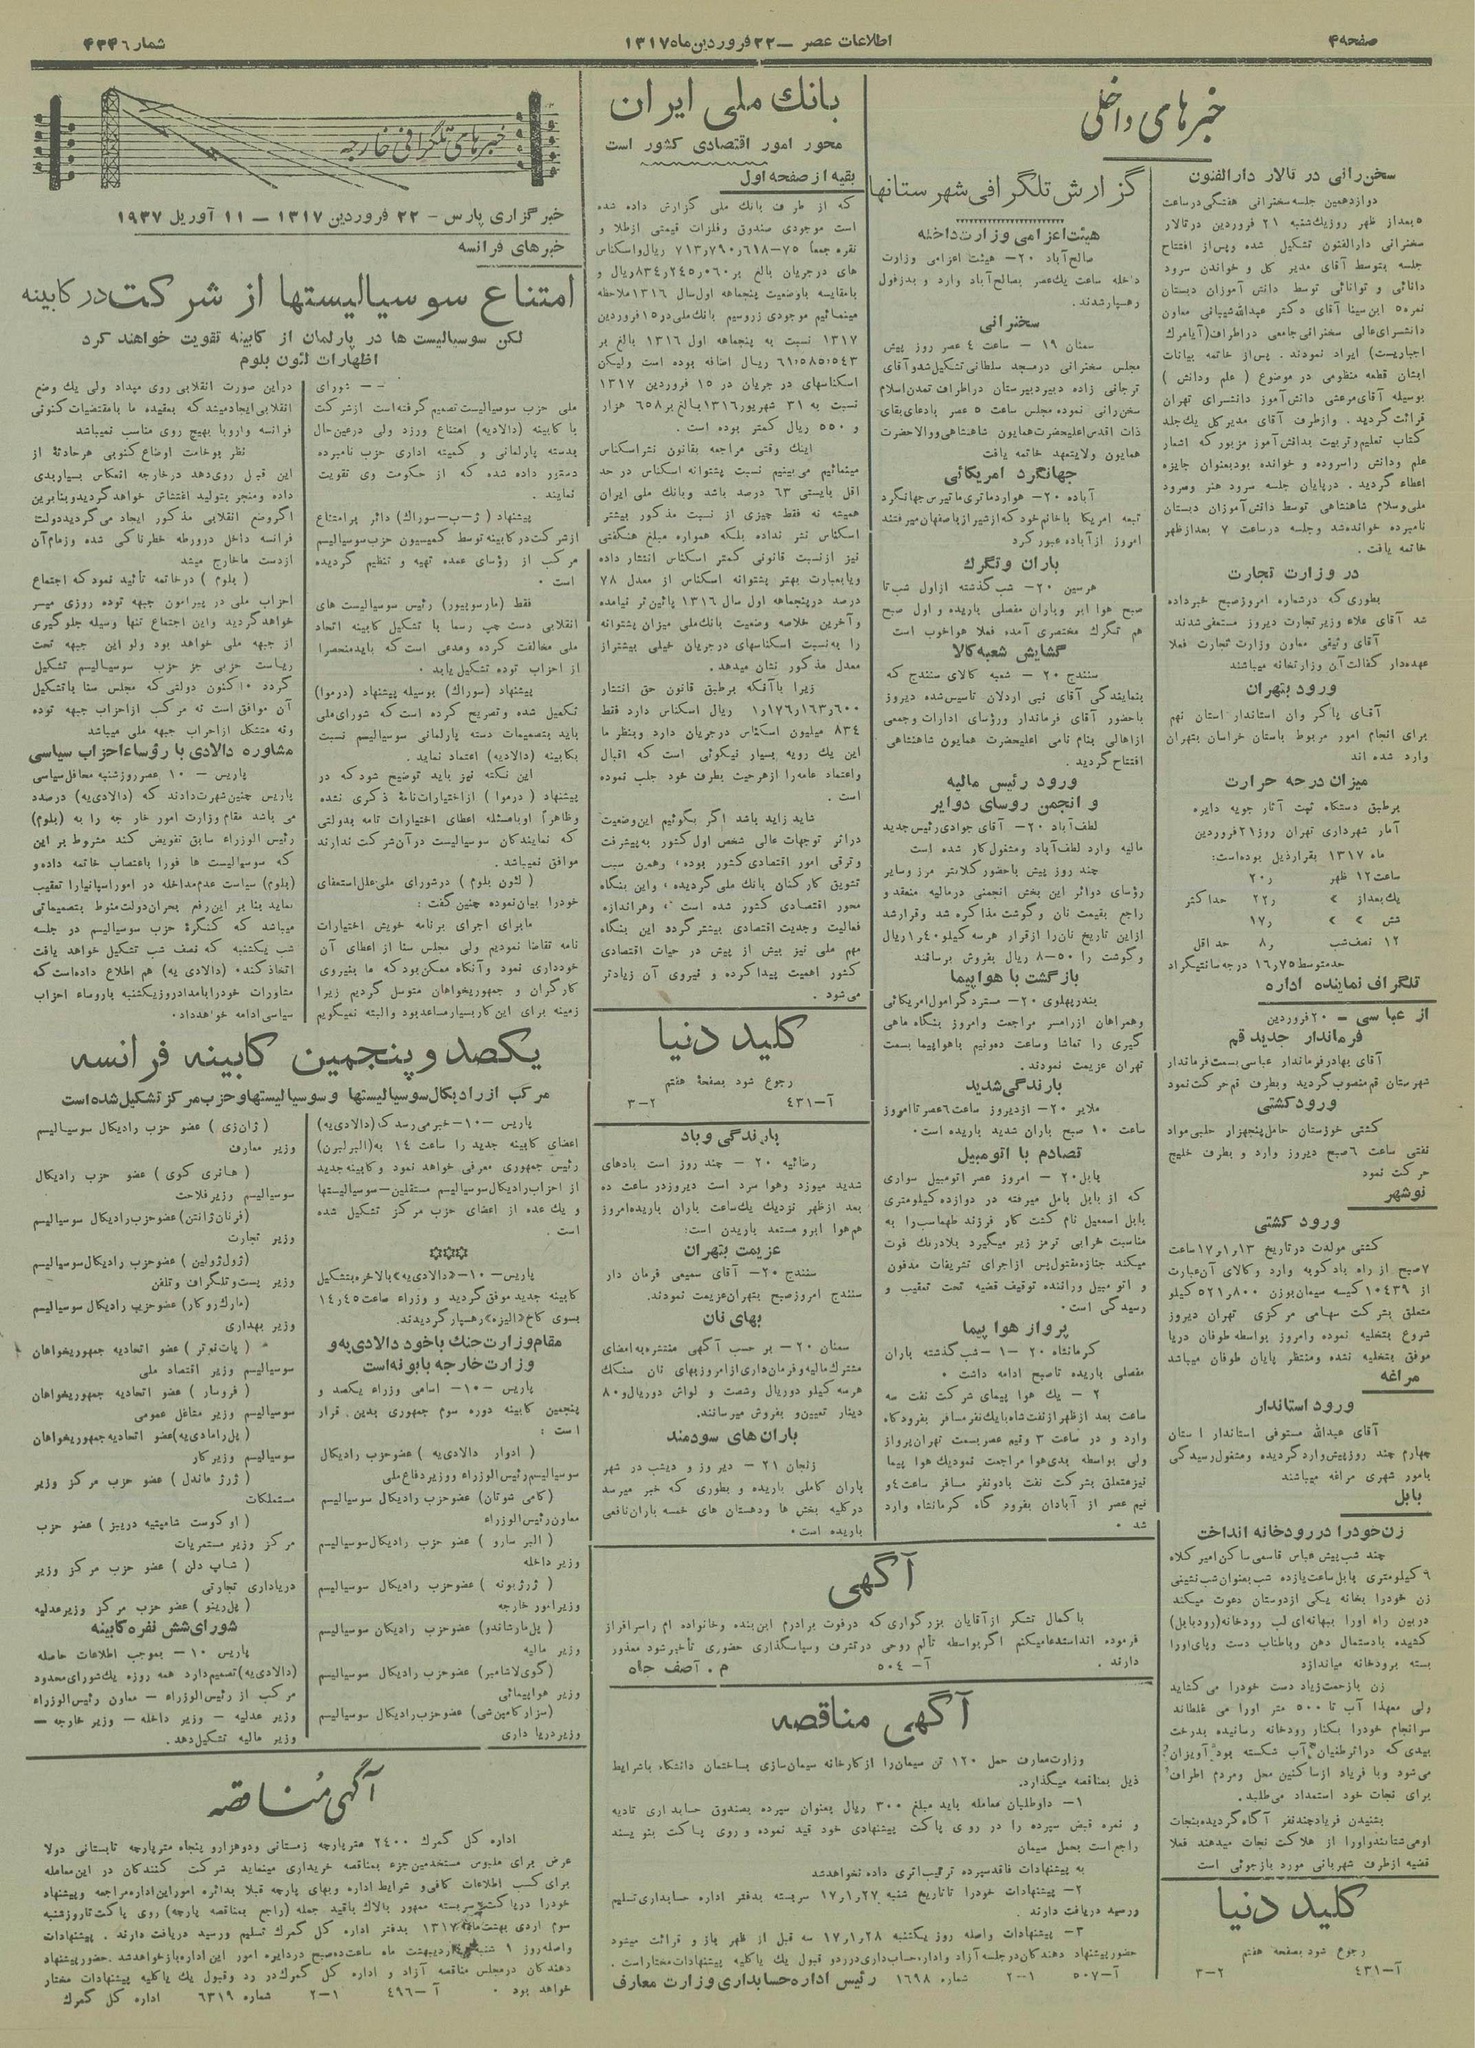 صفحه ۴
اطلاعات عصر ــ ۲۲ فروردین ماه ۱۳۱۷
شمار ۴۳۴۶
خبرهای داخلی
سخن‌رانی در تالار دارالفنون
دوازدهمین جلسه سخنرانی هفتگی در ساعت
۵ بعد از ظهر روز یک شنبه ۲۱ فروردین در تالار
سخنرانی دارالفنون تشکیل شده و پس از افتتاح
جلسه بتوسط آقای مدیر کل و خواندن سرود
دانائی و توانائی توسط دانش آموزان دبستان
نمره ۵ ابن سینا آقای دکتر عبدالله شیبانی معاون
دانشسرای عالی سخنرانی جامعی در اطراف (آیا مرگ
اجباریست) ایراد نمودند . پس از خاتمه بیانات
ایشان قطعه منظومی در موضوع ( علم و دانش )
بوسیله آقای مرعشی دانش آموز دانشسرای تهران
قرائت گردید . و از طرف آقای مدیر کل یک جلد
کتاب تعلیم و تربیت بدانش آموز مزبور که اشعار
علم و دانش را سروده و خوانده بود بعنوان جایزه
اعطاء گردید . در پایان جلسه سرود هنر و سرود
ملی و سلام شاهنشاهی توسط دانش آموزان دبستان
نامبرده خوانده شد و جلسه در ساعت ۷ بعد از ظهر
خاتمه یافت .
در وزارت تجارت
بطوری که در شماره امروز صبح خبر داده
شد آقای علاء وزیر تجارت دیروز مستعفی شدند
آقای وثیقی معاون وزارت تجارت فعلا
عهده‌دار کفالت آن وزارتخانه میباشند
ورود بتهران
آقای پاکروان استاندار استان نهم
برای انجام امور مربوط باستان خراسان بتهران
وارد شده اند
میزان درجه حرارت
برطبق دستگاه ثبت آثار جویه دایره
آمار شهرداری تهران روز ۲۱ فروردین
ماه ۱۳۱۷ بقرار ذیل بوده است:
ساعت ۱۲ ظهر ۲۰ر
یک بعداز » ۲۲ر حداکثر
شش » » ۱۷ر
۱۲ نصف شب ۸ر حد اقل
حد متوسط ۱۶ر۷۵ درجه سانتیگراد
تلگراف نماینده اداره
از عباسی ــ ۲۰ فروردین
فرماندار جدید قم
آقای بهادر فرماندار عباسی بسمت فرماندار
شهرستان قم منصوب گردید و بطرف قم حرکت نمود
ورود کشتی
کشتی خوزستان حامل پنجهزار حلبی مواد
نفتی ساعت ۶ صبح دیروز وارد و بطرف خلیج
حرکت نمود
نوشهر
ورود کشتی
کشتی مولدت در تاریخ ۱۳ر۱ر۱۷ ساعت
۷ صبح از راه بادکوبه وارد و کالای آن عبارت
از ۱۰۴۳۹ کیسه سیمان بوزن ۸۰۰ر۵۲۱ کیلو
متعلق بشرکت سهامی مرکزی تهران دیروز
شروع بتخلیه نموده و امروز بواسطه طوفان دریا
موفق بتخلیه نشده و منتظر پایان طوفان میباشد
مراغه
ورود استاندار
آقای عبدالله مستوفی استاندار استان
چهارم چند روز پیش وارد گردیده و مشغول رسیدگی
بامور شهری مراغه میباشند
بابل
زن خود را در رودخانه انداخت
چند شب پیش عباس قاسمی ساکن امیر کلاه
۹ کیلومتری بابل ساعت یازده شب بعنوان شب نشینی
زن خود را بخانه یکی از دوستان دعوت میکند
در بین راه او را ببهانه‌ای لب رودخانه (رود بابل)
کشیده با دستمال دهن و با طناب دست و پای او را
بسته برودخانه میاندازد
زن با زحمت زیاد دست خود را می گشاید
ولی معهذا آب تا ۵۰۰ متر او را می غلطاند
سرانجام خود را بکنار رودخانه رسانیده بدرخت
بیدی که در اثر طغیان آب شکسته بود آویزان
می‌شود و با فریاد از ساکنین محل و مردم اطراف
برای نجات خود استمداد می‌طلبد .
بشنیدن فریاد چند نفر آگاه گردیده بنجات
او می‌شتابند و او را از هلاکت نجات میدهند فعلا
قضیه از طرف شهربانی مورد بازجوئی است
کلید دنیا
رجوع شود بصفحه هفتم
آ–۴۳۱ ۲–۳
گزارش تلگرافی شهرستانها
هیئت اعزامی وزارت داخله
صالح آباد ۲۰– هیئت اعزامی وزارت
داخله ساعت یک عصر بصالح آباد وارد و بدزفول
رهسپار شدند.
سخنرانی
سمنان ۱۹ – ساعت ۴ عصر روز پیش
مجلس سخنرانی در مسجد سلطانی تشکیل شد و آقای
ترجانی زاده دبیر دبیرستان در اطراف تمدن اسلام
سخن رانی نموده مجلس ساعت ۵ عصر با دعای بقای
ذات اقدس اعلیحضرت همایون شاهنشاهی و والاحضرت
همایون ولایتعهد خاتمه یافت
جهانگرد امریکائی
آباده ۲۰– هوارد ماتری ماتیرس جهانگرد
تبعه امریکا با خانم خود که از شیراز باصفهان میرفتند
امروز از آباده عبور کرد
باران و تگرگ
هرسین ۲۰– شب گذشته از اول شب تا
صبح هوا ابر و باران مفصلی باریده و اول صبح
هم تگرگ مختصری آمده فعلا هوا خوب است
گشایش شعبه کالا
سنندج ۲۰ – شعبه کالای سنندج که
بنمایندگی آقای نبی اردلان تاسیس شده دیروز
با حضور آقای فرماندار و رؤسای ادارات و جمعی
از اهالی بنام نامی اعلیحضرت همایون شاهنشاهی
افتتاح گردید .
ورود رئیس مالیه
و انجمن روسای دوایر
لطف آباد ۲۰– آقای جوادی رئیس جدید
مالیه وارد لطف آباد و مشغول کار شده است
چند روز پیش با حضور کلانتر مرز و سایر
رؤسای دوائر این بخش انجمنی در مالیه منعقد و
راجع بقیمت نان و گوشت مذاکره شد و قرار شد
از این تاریخ نان را از قرار هر سه کیلو ۴۰ر۱ ریال
و گوشت را ۵۰–۸ ریال بفروش برسانند
بازگشت با هواپیما
بندر پهلوی ۲۰– مستر دگرامول امریکائی
و همراهان از رامسر مراجعت و امروز بنگاه ماهی
گیری را تماشا و ساعت ده و نیم با هواپیما بسمت
تهران عزیمت نمودند.
بارندگی شدید
ملایر ۲۰– از دیروز ساعت ۶ عصر تا امروز
ساعت ۱۰ صبح باران شدید باریده است .
تصادم با اتومبیل
بابل ۲۰– امروز عصر اتومبیل سواری
که از بابل بآمل میرفته در دوازده کیلومتری
بابل اسمعیل نام کشت کار فرزند طهماسب را به
مناسبت خرابی ترمز زیر میگیرد بلادرنگ فوت
میکند جنازه مقتول پس از اجرای تشریفات مدفون
و اتومبیل و راننده توقیف قضیه تحت تعقیب و
رسیدگی است .
پرواز هواپیما
کرمانشاه ۲۰ –۱– شب گذشته باران
مفصلی باریده تا صبح ادامه داشت .
۲ – یک هواپیمای شرکت نفت سه
ساعت بعد از ظهر از نفت شاه با یک نفر مسافر بفرودگاه
وارد و در ساعت ۳ و نیم عصر بسمت تهران پرواز
ولی بواسطه بدی هوا مراجعت نمود یک هواپیما
نیز متعلق بشرکت نفت با دو نفر مسافر ساعت ۴ و
نیم عصر از آبادان بفرود گاه کرمانشاه وارد
شد .
بانک ملی ایران
محور امور اقتصادی کشور است
بقیه از صفحه اول
که از طرف بانک ملی گزارش داده شده
است موجودی صندوق و فلزات قیمتی از طلا و
نقره جمعاً ۷۵–۶۱۸ر۷۹۰ر۷۱۳ ریال و اسکناس
های در جریان بالغ بر ۰۶۰ر۲۴۵ر۸۳۴ ریال و
با مقایسه با وضعیت پنجماهه اول سال ۱۳۱۶ ملاحظه
مینمائیم موجودی زر و سیم بانک ملی در ۱۵ فروردین
۱۳۱۷ نسبت به پنجماهه اول ۱۳۱۶ بالغ بر
۶۱ر۵۸۵ر۵۴۳ ریال اضافه بوده است ولیکن
اسکناسهای در جریان در ۱۵ فروردین ۱۳۱۷
نسبت به ۳۱ شهریور ۱۳۱۶ بالغ بر ۶۵۸ هزار
و ۵۵۰ ریال کمتر بوده است .
اینک وقتی مراجعه بقانون نشر اسکناس
مینمائیم می‌بینیم نسبت پشتوانه اسکناس در حد
اقل بایستی ۶۳ درصد باشد و بانک ملی ایران
همیشه نه فقط چیزی از نسبت مذکور بیشتر
اسکناس نشر نداده بلکه همواره مبلغ هنگفتی
نیز از نسبت قانونی کمتر اسکناس انتشار داده
و یا بعبارت بهتر پشتوانه اسکناس از معدل ۷۸
درصد در پنجماهه اول سال ۱۳۱۶ پائین‌تر نیامده
و آخرین خلاصه وضعیت بانک ملی میزان پشتوانه
را به نسبت اسکناسهای در جریان خیلی بیشتر از
معدل مذکور نشان میدهد .
زیرا با آنکه بر طبق قانون حق انتشار
۶۰۰ر۱۶۳ر۱۷۶ر۱ ریال اسکناس دارد فقط
۸۳۴ میلیون اسکناس در جریان دارد و بنظر ما
این یک رویه بسیار نیکوئی است که اقبال
و اعتماد عامه را از هر حیث بطرف خود جلب نموده
است .
شاید زاید باشد اگر بگوئیم این وضعیت
در اثر توجهات عالی شخص اول کشور به پیشرفت
و ترقی امور اقتصادی کشور بوده ، و همین سبب
تشویق کارکنان بانک ملی گردیده ، و این بنگاه
محور اقتصادی کشور شده است ، و هر اندازه
فعالیت و جدیت اقتصادی بیشتر گردد این بنگاه
مهم ملی نیز بیش از پیش در حیات اقتصادی
کشور اهمیت پیدا کرده و نیروی آن زیادتر
می‌شود .
کلید دنیا
رجوع شود بصفحهٔ هفتم
آ–۴۳۱ ۲–۳
بارندگی و باد
رضائیه ۲۰ – چند روز است بادهای
شدید میوزد و هوا سرد است دیروز در ساعت ده
بعد از ظهر نزدیک یک ساعت باران باریده امروز
هم هوا ابر و مستعد باریدن است :
عزیمت بتهران
سنندج ۲۰– آقای سمیعی فرمان دار
سنندج امروز صبح بتهران عزیمت نمودند.
بهای نان
سمنان ۲۰ – بر حسب آگهی منتشره به امضای
مشترک مالیه و فرمانداری از امروز بهای نان سنگک
هر سه کیلو دو ریال و شصت و لواش دو ریال و ۸۰
دینار تعیین و بفروش میرسانند.
باران های سودمند
زنجان ۲۱ – دیروز و دیشب در شهر
باران کاملی باریده و بطوری که خبر میرسد
در کلیه بخش ها و دهستان های خمسه باران نافعی
باریده است .
آگهی
با کمال تشکر از آقایان بزرگواری که در فوت برادرم این بنده و خانواده ام را سرافراز
فرموده اند استدعا میکنم اگر بواسطه تألم روحی در تشرف و سپاسگذاری حضوری تأخیر شود معذور
دارند . آ– ۵۰۴ م . آصف جاه
آگهی مناقصه
وزارت معارف حمل ۱۲۰ تن سیمان را از کارخانه سیمان سازی بساختمان دانشگاه با شرایط
ذیل بمناقصه میگذارد.
۱– داوطلبان معامله باید مبلغ ۳۰۰ ریال بعنوان سپرده بصندوق حسابداری تادیه
و نمره قبض سپرده را در روی پاکت پیشنهادی خود قید نموده و روی پاکت بنویسند
راجع است بحمل سیمان
به پیشنهادات فاقد سپرده ترتیب اثری داده نخواهد شد
۲– پیشنهادات خود را تا تاریخ شنبه ۲۷ر۱ر۱۷ سربسته بدفتر اداره حسابداری تسلیم
و رسید دریافت دارند .
۳– پیشنهادات واصله روز یکشنبه ۲۸ر۱ر۱۷ سه قبل از ظهر باز و قرائت میشود
حضور پیشنهاد دهندگان در جلسه آزاد و اداره حسابداری در رد و قبول یک یا کلیه پیشنهادات مختار است .
آ–۵۰۷ ۱–۲ شماره ۱۶۹۸ رئیس اداره حسابداری وزارت معارف
خبرهای تلگرافی خارجه
خبرگزاری پارس – ۲۲ فروردین ۱۳۱۷ – ۱۱ آوریل ۱۹۳۷
خبرهای فرانسه
امتناع سوسیالیستها از شرکت در کابینه
لکن سوسیالیست ها در پارلمان از کابینه تقویت خواهند کرد
اظهارات لئون بلوم
–– شورای
ملی حزب سوسیالیست تصمیم گرفته است از شرکت
با کابینه (دالادیه) امتناع ورزد ولی در عین حال
بدسته پارلمانی و کمیته اداری حزب نامبرده
دستور داده شده که از حکومت وی تقویت
نمایند .
پیشنهاد (ژ–ب–سوراک) دائر بر امتناع
از شرکت در کابینه توسط کمیسیون حزب سوسیالیسم
مرکب از رؤسای عمده تهیه و تنظیم گردیده
است .
فقط (مارسوپیور) رئیس سوسیالیست های
انقلابی دست چپ رسما با تشکیل کابینه اتحاد
ملی مخالفت کرده و مدعی است که باید منحصرا
از احزاب توده تشکیل یابد .
پیشنهاد (سوراک) بوسیله پیشنهاد (درموا)
تکمیل شده و تصریح کرده است که شورای ملی
باید بتصمیمات دسته پارلمانی سوسیالیسم نسبت
بکابینه (دالادیه) اعتماد نماید .
این نکته نیز باید توضیح شود که در
پیشنهاد (درموا) از اختیارات نامهٔ ذکری نشده
و ظاهراً او با مسئله اعطای اختیارات تامه بدولتی
که نمایندگان سوسیالیست در آن شرکت ندارند
موافق نمیباشد .
(لئون بلوم) در شورای ملی علل استعفای
خود را بیان نموده چنین گفت :
ما برای اجرای برنامه خویش اختیارات
نامه تقاضا نمودیم ولی مجلس سنا از اعطای آن
خودداری نمود و آنگاه ممکن بود که ما بنیروی
کارگران و جمهوریخواهان متوسل گردیم زیرا
زمینه برای این کار بسیار مساعد بود و البته نمیگویم
در این صورت انقلابی روی میداد ولی یک وضع
انقلابی ایجاد میشد که بعقیده ما با مقتضیات کنونی
فرانسه و اروپا بهیچ روی مناسب نمیباشد
نظر بوخامت اوضاع کنونی هر حادثهٔ از
این قبیل روی دهد در خارجه انعکاس بسیار بدی
داده و منجر بتولید اغتشاش خواهد گردید و بنابرین
اگر وضع انقلابی مذکور ایجاد می گردید دولت
فرانسه داخل در ورطه خطرناکی شده و زمام آن
از دست ما خارج میشد
(بلوم) در خاتمه تأئید نمود که اجتماع
احزاب ملی در پیرامون جبهه توده روزی میسر
خواهد گردید و این اجتماع تنها وسیله جلوگیری
از جبهه ملی خواهد بود ولو این جبهه تحت
ریاست حزبی جز حزب سوسیالیسم تشکیل
گردد . اکنون دولتی که مجلس سنا با تشکیل
آن موافق است نه مرکب از احزاب جبهه توده
و نه متشکل از احزاب جبهه ملی میباشد
مشاوره دالادی با رؤساء احزاب سیاسی
پاریس – ۱۰ عصر روز شنبه محافل سیاسی
پاریس چنین شهرت دادند که (دالادیه) در صدد
می باشد مقام وزارت امور خارجه را به (بلوم)
رئیس الوزراء سابق تفویض کند مشروط بر این
که سوسیالیست ها فورا باعتصاب خاتمه داده و
(بلوم) سیاست عدم مداخله در امور اسپانیا را تعقیب
نماید بنا بر این رفع بحران دولت منوط بتصمیماتی
میباشد که کنگرهٔ حزب سوسیالیسم در جلسه
شب یکشنبه که نصف شب تشکیل خواهد یافت
اتخاذ کند . (دالادی یه) هم اطلاع داده است که
مشاورات خود را بامداد روز یکشنبه با روساء احزاب
سیاسی ادامه خواهد داد .
یکصد و پنجمین کابینه فرانسه
مرکب از رادیکال سوسیالیستها و سوسیالیستها و حزب مرکز تشکیل شده است
پاریس –۱۰– خبر میرسد که (دالادی یه)
اعضای کابینه جدید را ساعت ۱۴ به (البر لبرن)
رئیس جمهوری معرفی خواهد نمود و کابینه جدید
از احزاب رادیکال سوسیالیسم مستقلین–سوسیالیستها
و یک عده از اعضای حزب مرکز تشکیل شده
است .
پاریس –۱۰– «دالادی یه» بالاخره بتشکیل
کابینه جدید موفق گردید و وزراء ساعت ۱۴ر۴۵
بسوی کاخ «الیزه» رهسپار گردیدند.
مقام وزارت جنگ با خود دالادی یه و
وزارت خارجه با بونه است
پاریس –۱۰– اسامی وزراء یکصد و
پنجمین کابینه دوره سوم جمهوری بدین قرار
است :
(ادوار دالادی یه) عضو حزب رادیکال
سوسیالیسم رئیس الوزراء و وزیر دفاع ملی
(کامی شوتان) عضو حزب رادیکال سوسیالیسم
معاون رئیس الوزراء
(البر سارو) عضو حزب رادیکال سوسیالیسم
وزیر داخله
(ژرژ بونه) عضو حزب رادیکال سوسیالیسم
وزیر امور خارجه
(پل مارشاندو) عضو حزب رادیکال سوسیالیسم
وزیر مالیه
(گوی لاشامبر) عضو حزب رادیکال سوسیالیسم
وزیر هواپیمائی
(سزار کامپن شی) عضو حزب رادیکال سوسیالیسم
وزیر دریاداری
(ژان زی) عضو حزب رادیکال سوسیالیسم
وزیر معارف
(هانری کوی) عضو حزب رادیکال
سوسیالیسم وزیر فلاحت
(فرنان ژانتن) عضو حزب رادیکال سوسیالیسم
وزیر تجارت
(ژول ژولین) عضو حزب رادیکال سوسیالیسم
وزیر پست و تلگراف و تلفن
(مارک روکار) عضو حزب رادیکال سوسیالیسم
وزیر بهداری
(پات نوتر) عضو اتحادیه جمهوریخواهان
سوسیالیسم وزیر اقتصاد ملی
(فروسار) عضو اتحادیه جمهوریخواهان
سوسیالیسم وزیر مشاغل عمومی
(پل رامادی یه) عضو اتحادیه جمهوریخواهان
سوسیالیسم وزیر کار
(ژرژ ماندل) عضو حزب مرکز وزیر
مستملکات
(اوگوست شامپتیه دریبز) عضو حزب
مرکز وزیر مستمریات
(شاپ دلن) عضو حزب مرکز وزیر
دریاداری تجارتی
(پل رینو) عضو حزب مرکز وزیر عدلیه
شورای شش نفره کابینه
پاریس ۱۰ – بموجب اطلاعات حاصله
(دالادی یه) تصمیم دارد همه روزه یک شورای محدود
مرکب از رئیس الوزراء – معاون رئیس الوزراء
وزیر عدلیه – وزیر داخله – وزیر خارجه –
وزیر مالیه تشکیل دهد .
آگهی مناقصه
اداره کل گمرک ۲۴۰۰ متر پارچه زمستانی و دو هزار و پنجاه متر پارچه تابستانی دولا
عرض برای ملبوس مستخدمین جزء بمناقصه خریداری مینماید شرکت کنندگان در این معامله
برای کسب اطلاعات کافی و شرایط اداره و بهای پارچه قبلا بدائره امور این اداره مراجعه و پیشنهاد
خود را در پاکت سر بسته ممهور بالاک با قید جمله (راجع بمناقصه پارچه) روی پاکت تا روز شنبه
سوم اردی بهشت ماه ۱۳۱۷ بدفتر اداره کل گمرک تسلیم و رسید دریافت دارند . پیشنهادات
واصله روز ۱ شنبه ۴ اردیبهشت ماه ساعت ده صبح در دایره امور این اداره باز خواهد شد . حضور پیشنهاد
دهندگان در مجلس مناقصه آزاد و اداره کل گمرک در رد و قبول یک یا کلیه پیشنهادات مختار
خواهد بود . آ–۴۹۶ ۱–۲ شماره ۶۳۱۹ اداره کل گمرک